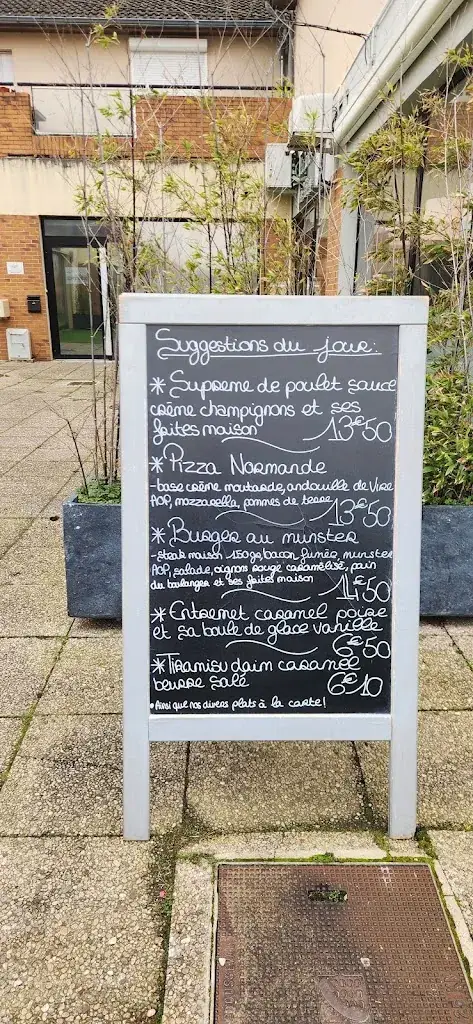 Suggestions du jour:
* Supreme de poulet sauce
crème champignons et ses
frites maison 13€50
* Pizza Normande
-base crème moutarde, andouille de Vire
AOP, mozzarella, pommes de terre 13€50
* Burger au munster
-steak maison 150gr, bacon fumée, munster
AOP, salade, oignons rouge caramélisé, pain
du boulanger et ses frites maison 14€50
* Entremet caramel poire
et sa boule de glace vanille 6€50
* Tiramisu daim caramel
beurre salé 6€10
• Ainsi que nos divers plats à la carte!